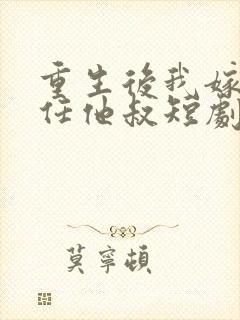 重生後我嫁
任他叔短劇
莫寧頓